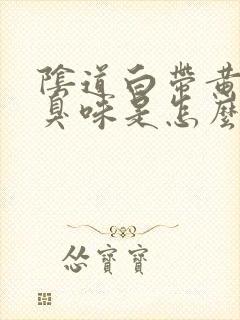 陰道白帶黃
臭味是怎麼
怂寶寶